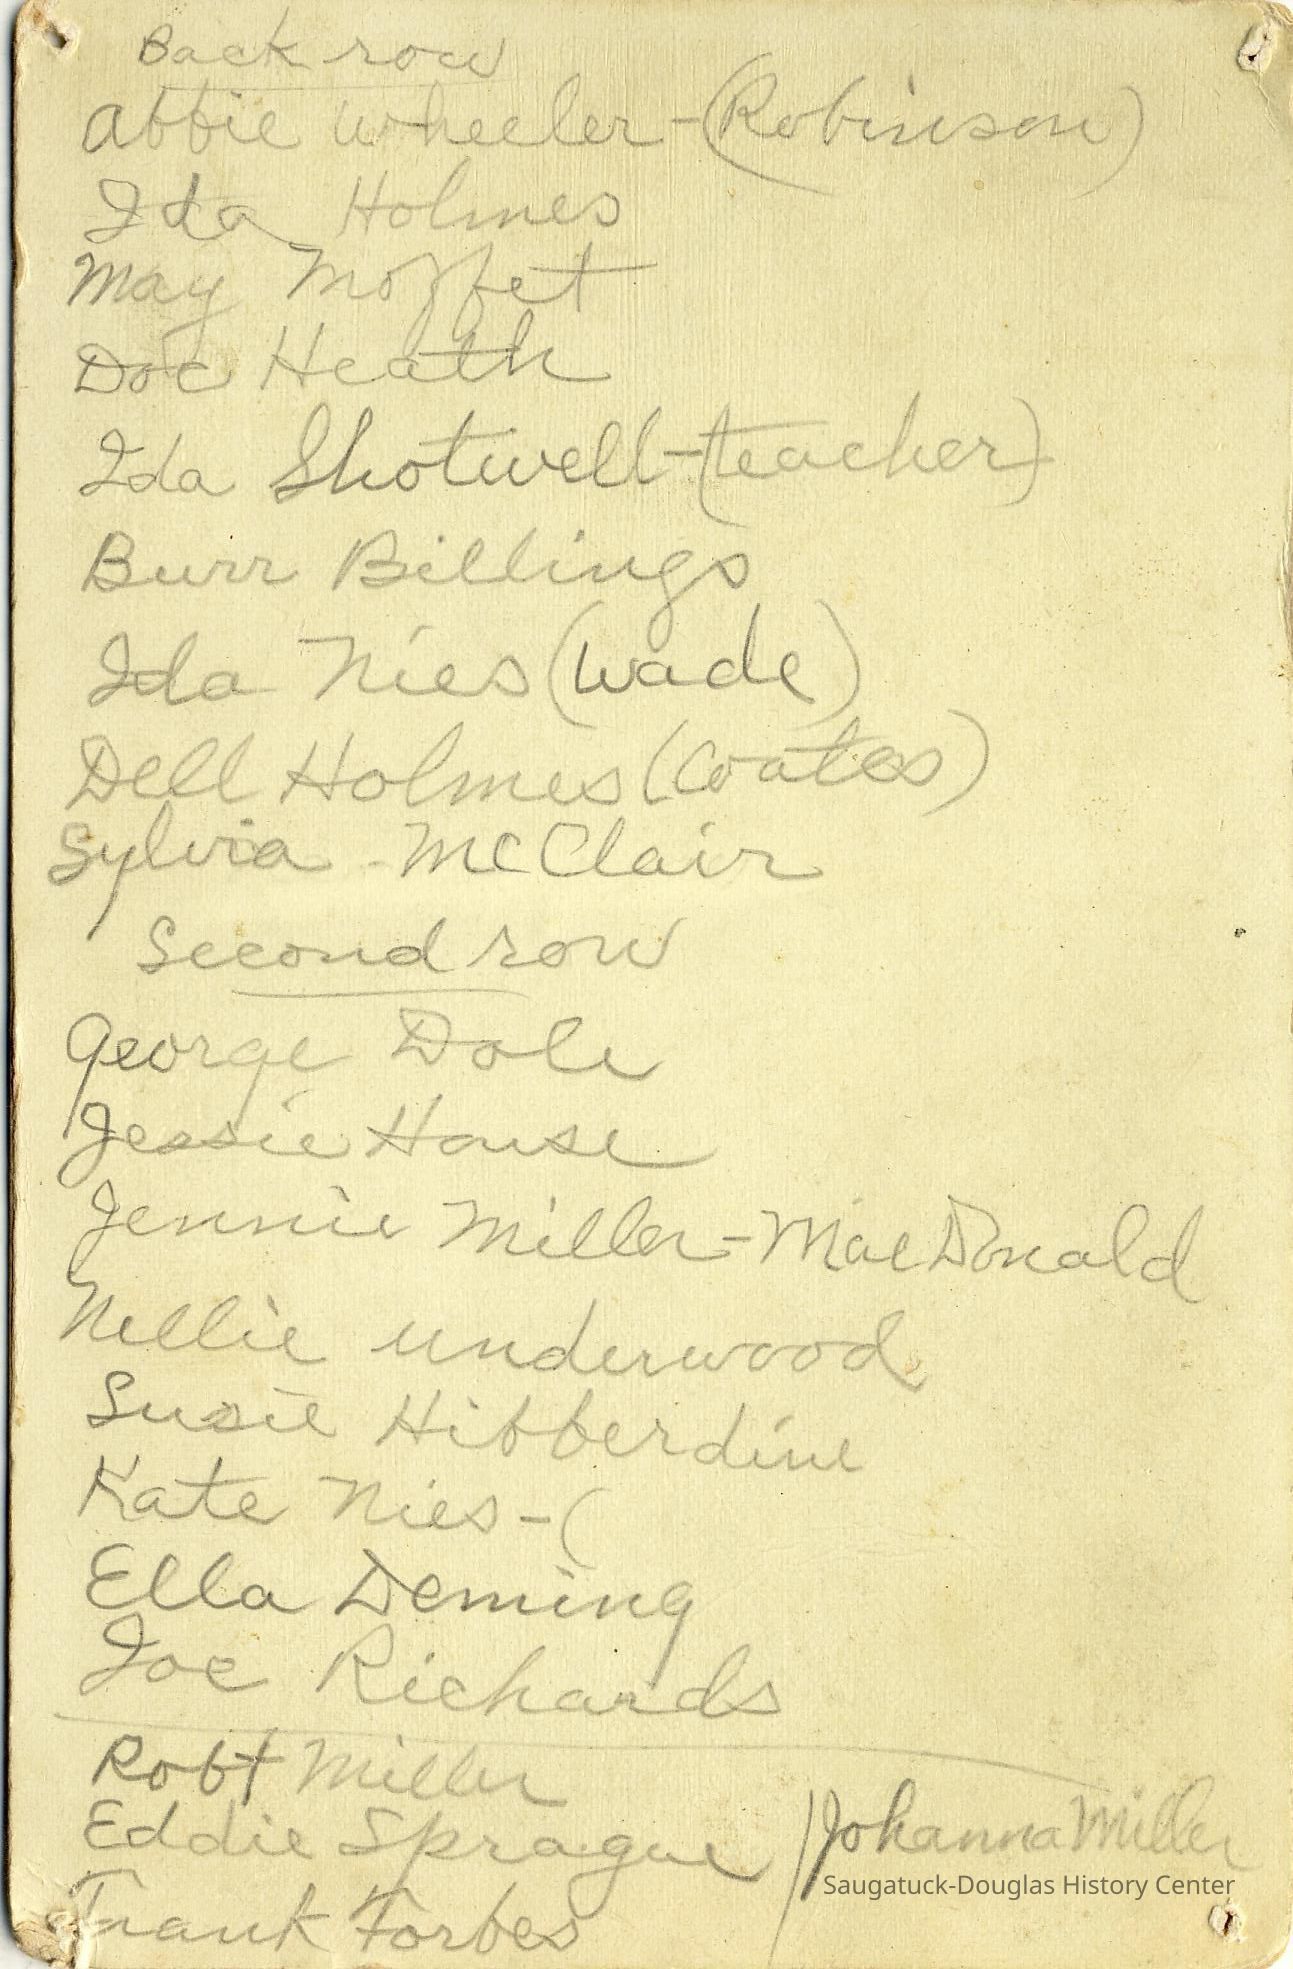 Back row
Abbie Wheeler-(Robinson)
Ida Holmes
May Moffet
Doc Heath
Ida Shotwell-(teacher)
Burr Billings
Ida Nies (Wade)
Dell Holmes (Coates)
Sylvia McClair
Second row
George Dole
Jessie House
Jennie Miller-MacDonald
Nellie underwood
Susie Hibberdine
Kate Nies-(
Ella Deming
Joe Richards
Robt Miller
Eddie Sprague / Johanna Miller
Saugatuck-Douglas History Center
Frank Forbes